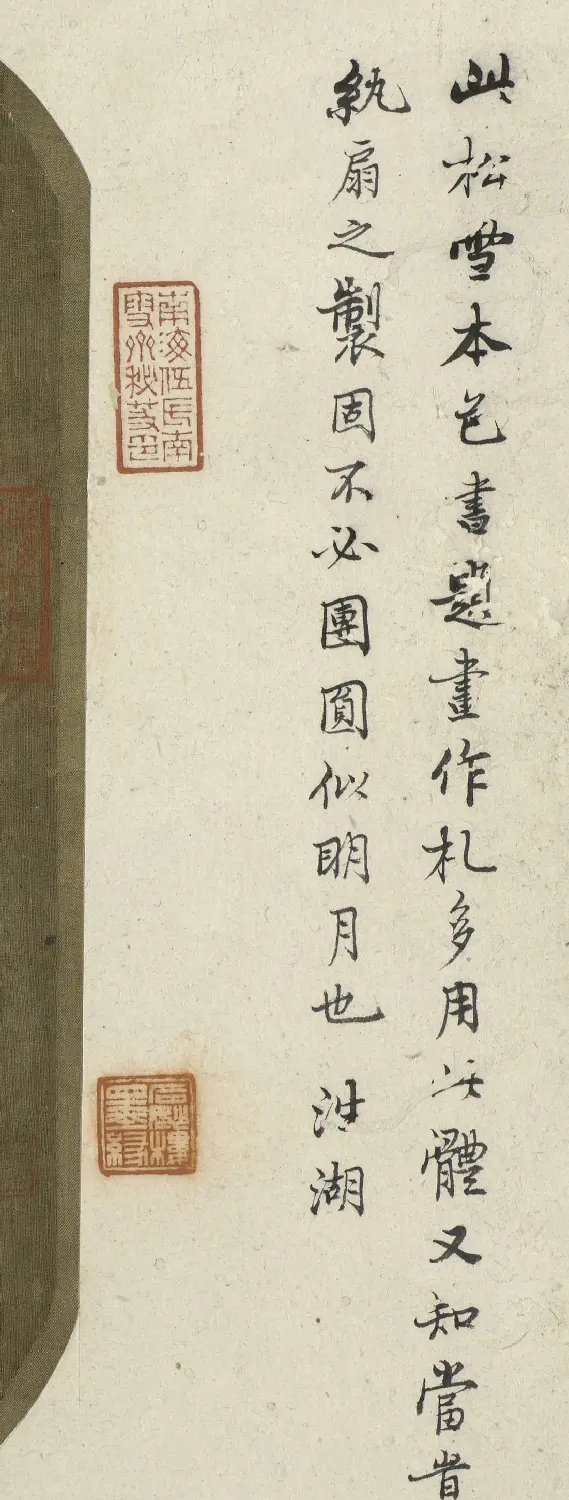 此松雪本色書題畫作札多用此體又知當昔
紈扇之製固不必團圓似明月也 洪湖
南海伍氏南雪齋秘笈印